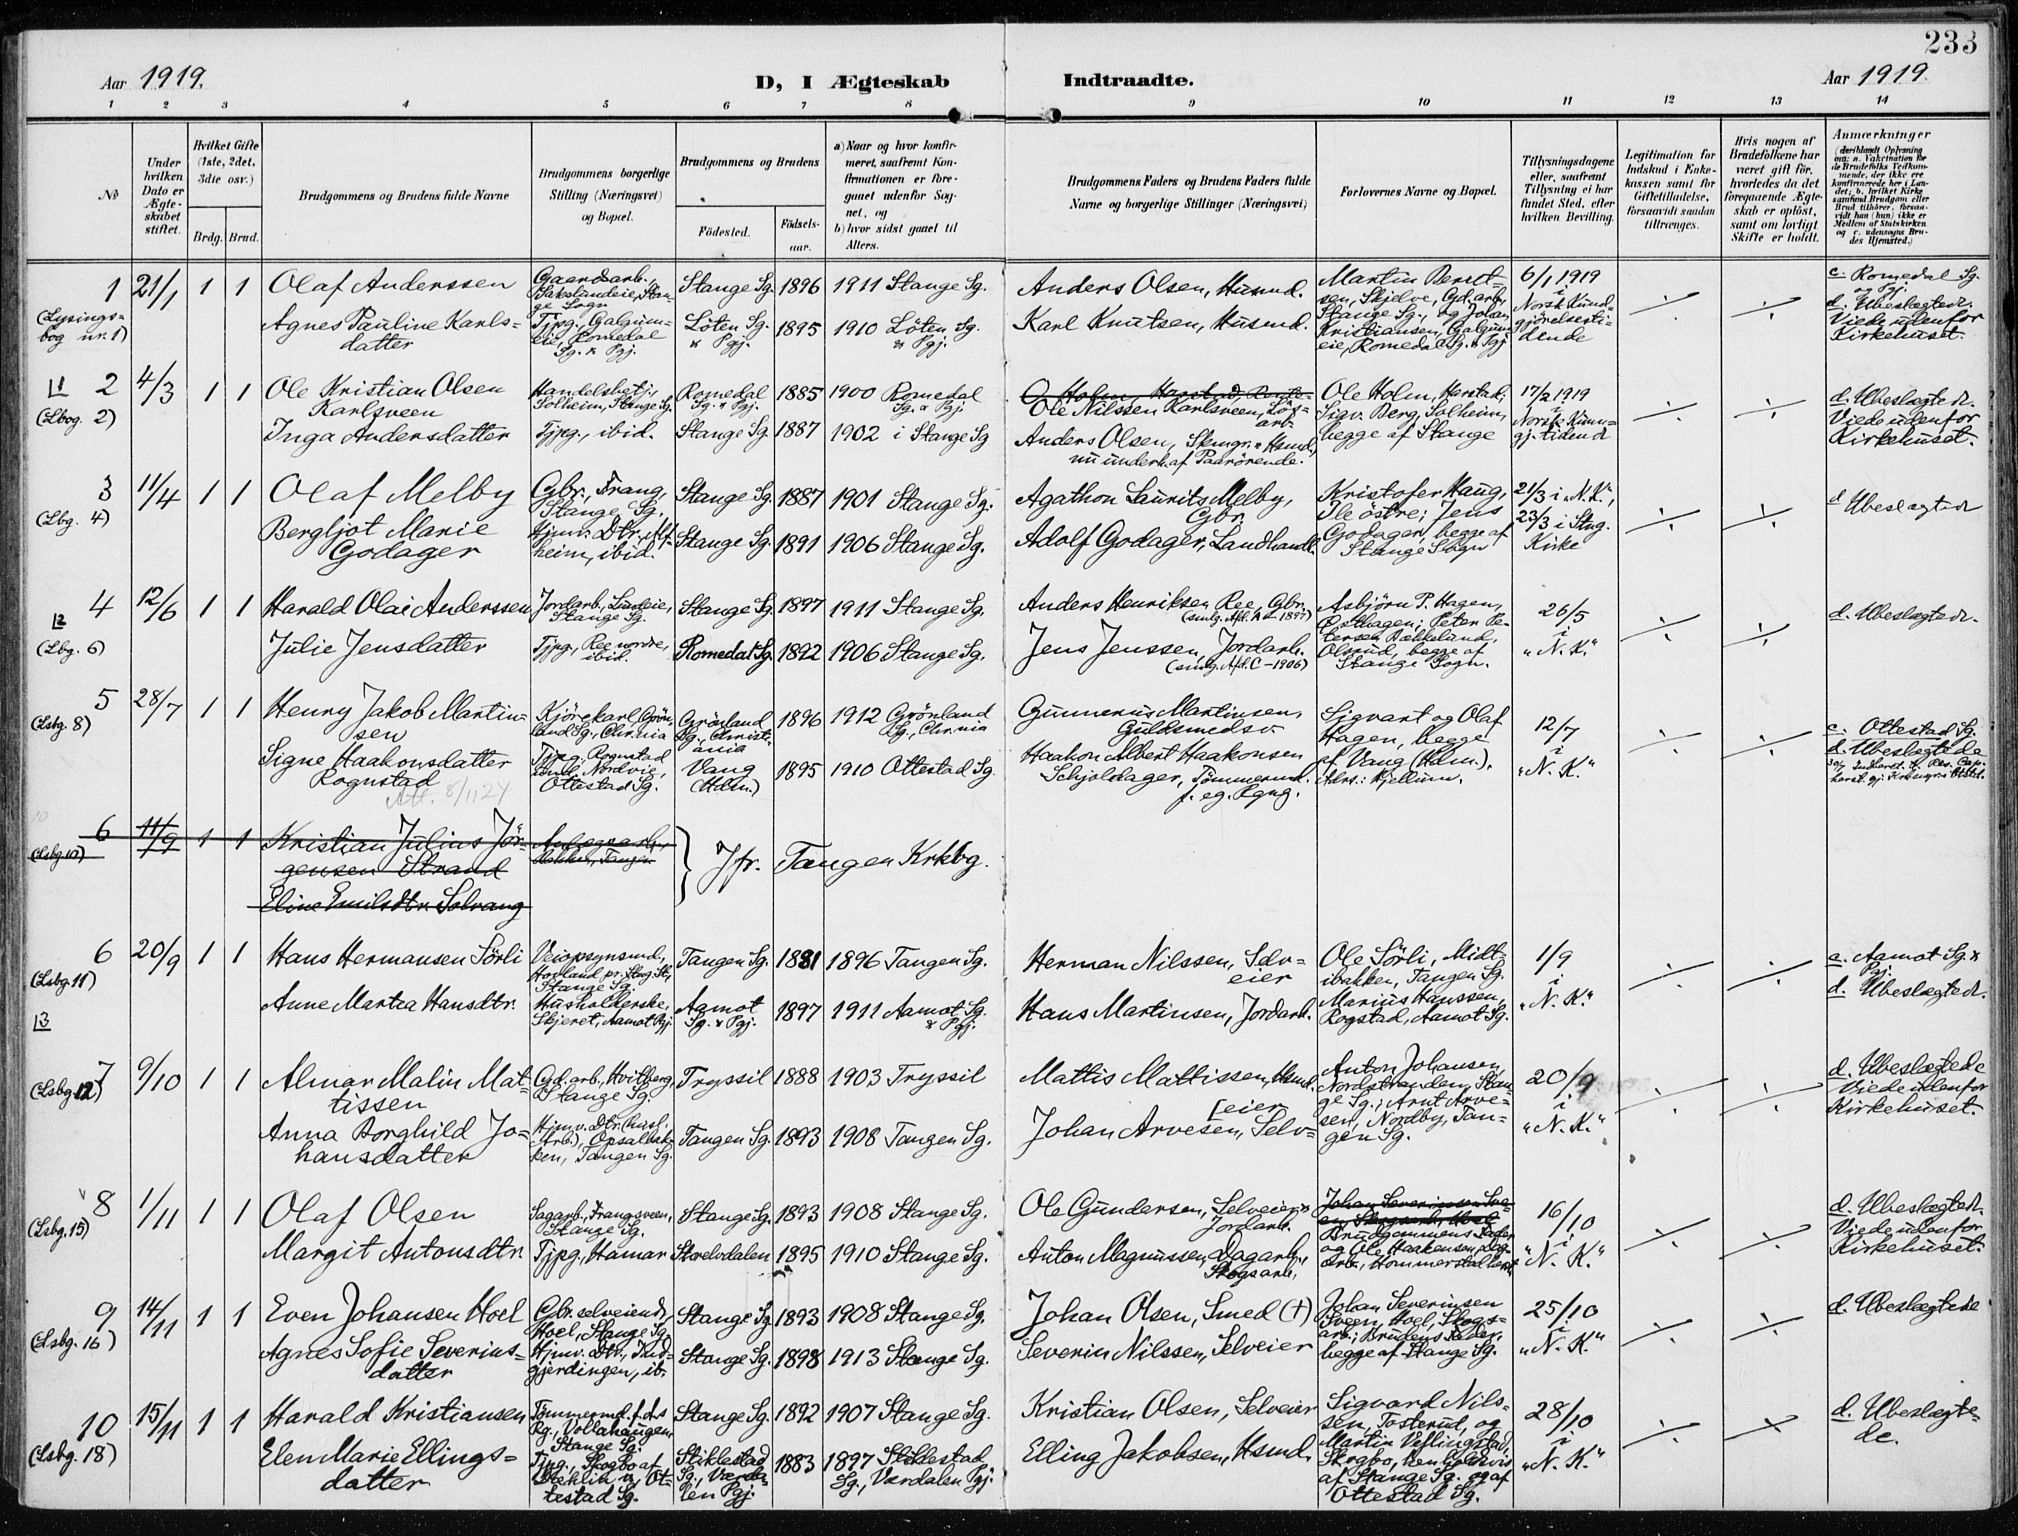 233
Aar 1919.
D, I Ægteskab
Indtraadte.
Aar 1919
1 2 3 4 5 6 7 8 9 10 11 12 13 14
№
Under hvilken Dato er Ægteskabet stiftet.
Hvilket Gifte (1ste, 2det, 3die osv.)
Brdg. Brud.
Brudgommens og Brudens fulde Navne
Brudgommens borgerlige Stilling (Næringsvei) og Bopæl.
Brudgommens og Brudens
Födested.
Födselsaar.
a) Naar og hvor konfirmeret, saafremt Konfirmationen er foregaaet udenfor Sognet, og
b) hvor sidst gaaet til Alters.
Brudgommens Faders og Brudens Faders fulde Navne og borgerlige Stillinger (Næringsvei)
Forlovernes Navne og Bopæl.
Tillysningsdagene eller, saafremt Tillysning ei har fundet Sted, efter hvilken Bevilling.
Legitimation for Indskud i Enkekassen samt for Giftetilladelse, forsaavidt saadan tiltrænges.
Hvis nogen af Brudefolkene har været gift för, hvorledes da det foregaaende Ægteskab er oplöst, samt om lovligt Skifte er holdt.
Anmærkninger
(deriblandt Oplysning om: a. Vakcination for de Brudefolks Vedkommende, der ikke ere konfirmerede her i Landet; b. hvilket Kirkesamfund Brudgom eller Brud tilhører, forsaavidt han (hun) ikke er Medlem af Statskirken og c. udensogns Brudes Hjemsted.)
1 21/1 1 1 Olaf Anderssen
Gaardsarb., Stange Sogn
Stange Sg. 1896 1911 Stange Sg.
Anders Olsen, Husmd.
Martin Berntsen, Skjelve, Gd.arb., Stange Sg., og Johan Kristiansen, Galgumeie, Romedal Sg. & Pgj
6/1 1919 i Norsk Kundgjörelsestidende
c. Romedal Sg. og Pgj.
d. Ubeslægtede.
Viede udenfor Kirkehuset.
(Lysingsbog nr. 1)
Agnes Pauline Karlsdatter
Tjpg., Galgumeie, Romedal Sg. & Pgj.
Löten Sg. & Pgj. 1895 1910 Löten Sg. & Pgj.
Karl Knutsen, Husmd.
2 4/3 1 1 Ole Kristian Olsen Karlsveen
(Lbog. 2)
Handelsbetj., Solheim, Stange Sg.
Romedal Sg. & Pgj. 1885 1900 Romedal Sg. & Pgj.
Ole Nilssen Karlsveen, Lösarb.
Ole Holm, Herstad, Sigv. Berg, Solheim, begge af Stange
17/2 1919 i Norsk Kunngj. tidend
d. Ubeslægtede.
Viede udenfor Kirkehuset.
Inga Andersdatter
Tjpg., ibid.
Stange Sg 1887 1902 i Stange Sg
Anders Olsen, Skmgr. & Husmd, nu underh. af Paarörende.
3 11/4 1 1 Olaf Melby
(Lbg. 4)
Gbr., Frang, Stange Sg.
Stange Sg. 1887 1901 Stange Sg.
Agathon Laurits Melby, Gbr.
Kristofer Haug, Ile östre; Jens Godager, begge af Stange Sogn
21/3 i "N.K.", 23/3 i Stng. Kirke
d Ubeslægtede
Bergljot Marie Godager
Hjmv. Dtr., Alfheim, ibid.
Stange Sg. 1891 1906 Stange Sg.
Adolf Godager, Landhandl.
4 12/6 1 1 Harald Olai Anderssen
(Lbg. 6)
Jordarb., Lundeie, Stange Sg.
Stange Sg. 1897 1911 Stange Sg.
Anders Henriksen Ree, Gbr.
(smlg. Afd. A - 1897)
Asbjörn P. Hagen, Peter Petersen Bækkeland, Olsrud, begge af Stange Sogn.
26/5 i "N.K."
d. Ubeslægtede.
Julie Jensdatter
Tjpg., Ree nordre, ibid.
Romedal Sg. 1892 1906 Stange Sg.
Jens Jenssen, Jordarb.
(smlg. Afd. C - 1906)
5 28/7 1 1 Henry Jakob Martinsen
(Lsbg. 8)
Kjörekarl, Grönland Sg., Chr.nia
Grönland Sg., Christiania 1896 1912 Grönland Sg., Chr.nia
Gunnerius Martinsen, Guldsmedsv
Sigvart og Olaf Hagen, begge af Vang (Hdm.). Adrs.: Hjellum.
12/7 i "N.K."
c. Ottestad Sg.
d. Ubeslægtede
Signe Haakonsdatter Rognstad
Tjpg., Rognstad, Nordvie, Ottestad Sg.
Vang (Hdm.) 1895 1910 Ottestad Sg
Haakon Albert Haakonsen Schjoldager, Tömmermd. f. eg. Rgng.
Att. 8/11 24
6 11/9 1 1 Kristian Julius Jörgensen Strand
(Lsbg. 10)
Anlægsarb., Bakken, Tangen
Eline Emilsdtr. Solvang
Jfr. Tangen Krkbg.
6 20/9 1 1 Hans Hermansen Sörli
(Lsbg. 11)
Veiopsynsmd., Hovland pr. Stng. St., Stange Sg.
Tangen Sg. 1881 1896 Tangen Sg.
Herman Nilssen, Selveier
Ole Sörli, Midtibakken, Tangen Sg.
Marius Hanssen, Rogstad, Aamot Sg.
1/9 i "N.K."
c. Aamot Sg. & Pgj.
d. Ubeslægtede.
Anne Martea Hansdtr.
Husholderske, Skjeret, Aamot Pgj.
Aamot Sg. & Pgj. 1897 1911 Aamot Sg. & Pgj.
Hans Martinsen, Jordarb.
7 9/10 1 1 Almar Malin Mattissen
(Lsbg. 12)
Gd.arb., Hvitberg, Stange Sg.
Tryssil 1888 1903 Tryssil
Mattis Mattissen, Husmd.
Anton Johansen, Nordstranden, Stange Sg.; Arnt Arvesen, Nordby, Tangen Sg.
20/9 i "N.K."
d. Ubeslægtede
Viede udenfor Kirkehuset.
Anna Borghild Johansdatter
Hjmv. Dtr. (husl. Arb.), Opsalbakken, Tangen Sg.
Tangen Sg. 1893 1908 Tangen Sg.
Johan Arvesen, Selveier
8 1/11 1 1 Olaf Olsen
(Lsbg. 15)
Sagarb., Frangsveen, Stange Sg.
Stange Sg. 1893 1908 Stange Sg.
Ole Gundersen, Selveier & Jordarb.
Johan Severinsen Sveen, Skogsarb., Hoel
Brudgommens Fader og Ole Haakensen, Dagarb., Hommerstadhavn
16/10 i "N.K."
d. Ubeslægtede.
Viede udenfor Kirkehuset.
Margit Antonsdtr.
Tjpg., Hamar
Storelvdalen 1895 1910 Stange Sg.
Anton Magnussen, Dagarb., Skogsarb.
9 14/11 1 1 Even Johansen Hoel
(Lsbg. 16)
Gbr. selveiende, Hoel, Stange Sg.
Stange Sg 1893 1908 Stange Sg.
Johan Olsen, Smed (†)
Johan Severinsen Sveen, Hoel, Skogsarb.; Brudens Fader, begge af Stange Sg.
25/10 i "N.K."
d. Ubeslægtede
Agnes Sofie Severinsdatter
Hjmv. Dtr., Nudgjerdingen, ib.
Stange Sg. 1898 1913 Stange Sg.
Severin Nilssen, Selveier
10 15/11 1 1 Harald Kristiansen
(Lsbg. 18)
Tömmermd. f. drs Rg., Vollahaugen, Stange Sg.
Stange Sg. 1892 1907 Stange Sg.
Kristian Olsen, Selveier
Sigvard Nilssen, Tosterud, og Martin Veflingstad, Skogbo, henholdsvis af Stange Sg. og af Ottestad Sg.
28/10 i "N.K."
d. Ubeslægtede.
Elen Marie Ellingsdatter
Tjpg., Skogbo af Ottestad Sg.
Stiklestad Sg., Værdalen Pgj. 1883 1897 Stiklestad Sg., Værdalen Pgj.
Elling Jakobsen, Husmd.